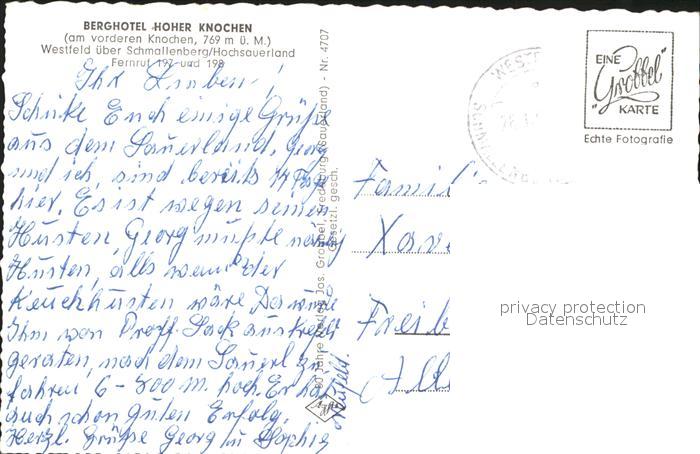 BERGHOTEL HOHER KNOCHEN
(am vorderen Knochen, 769 m ü. M.)
Westfeld über Schmallenberg/Hochsauerland
Fernruf 197 und 198
Ihr Lieben!
Schicke Euch einige Grüße
aus dem Sauerland. Georg
und ich, sind bereits 14 Tage
hier. Es ist wegen seinen
Husten, Georg mußte
Husten, alls wenn der
Keuchhusten wäre. Da wurde
Ihm von Proff.
geraten, nach dem Sauerl. zu
fahren 6-800 m. hoch. Er hat
auch schon guten Erfolg.
Herzl. Grüße Georg u Sophie
Jos. Grobbel, Fredeburg (Sauerland) - Nr. 4707
Gesetzl. gesch.
EINE
"Grobbel"
KARTE
Echte Fotografie
Famil
Xav
Freib
All
privacy protection
Datenschutz